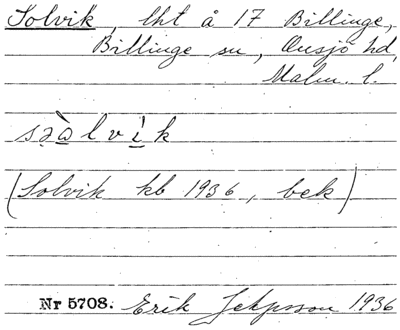 Solvik, lht å 17 Billinge,
Billinge sn, Onsjö hd,
Malm. l.
sə̀alvik
(Solvik kb 1936, bek)
Nr 5708. Erik Jeppsson 1936